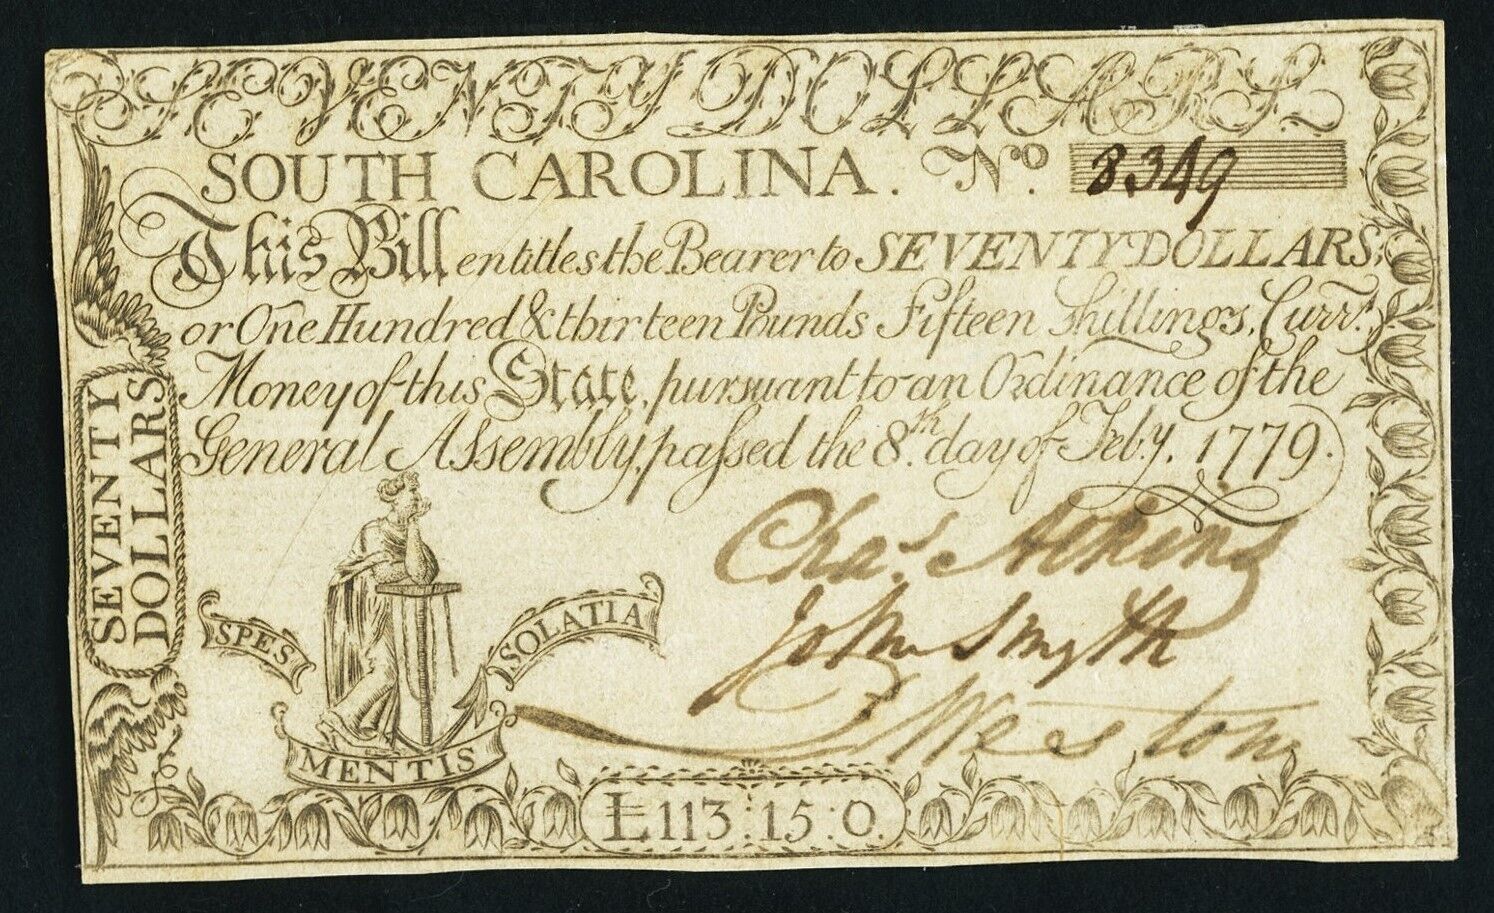 SEVENTY DOLLARS
SOUTH CAROLINA. No. 8349
This Bill entitles the Bearer to SEVENTY DOLLARS;
or One Hundred & thirteen Pounds Fifteen Shillings, Currt.
Money of this State, pursuant to an Ordinance of the
General Assembly, passed the 8th. day of Feby. 1779.
SEVENTY
DOLLARS
Chas. Atkins
John Smyth
P Weston
SPES
MENTIS
SOLATIA
£113:15:0.